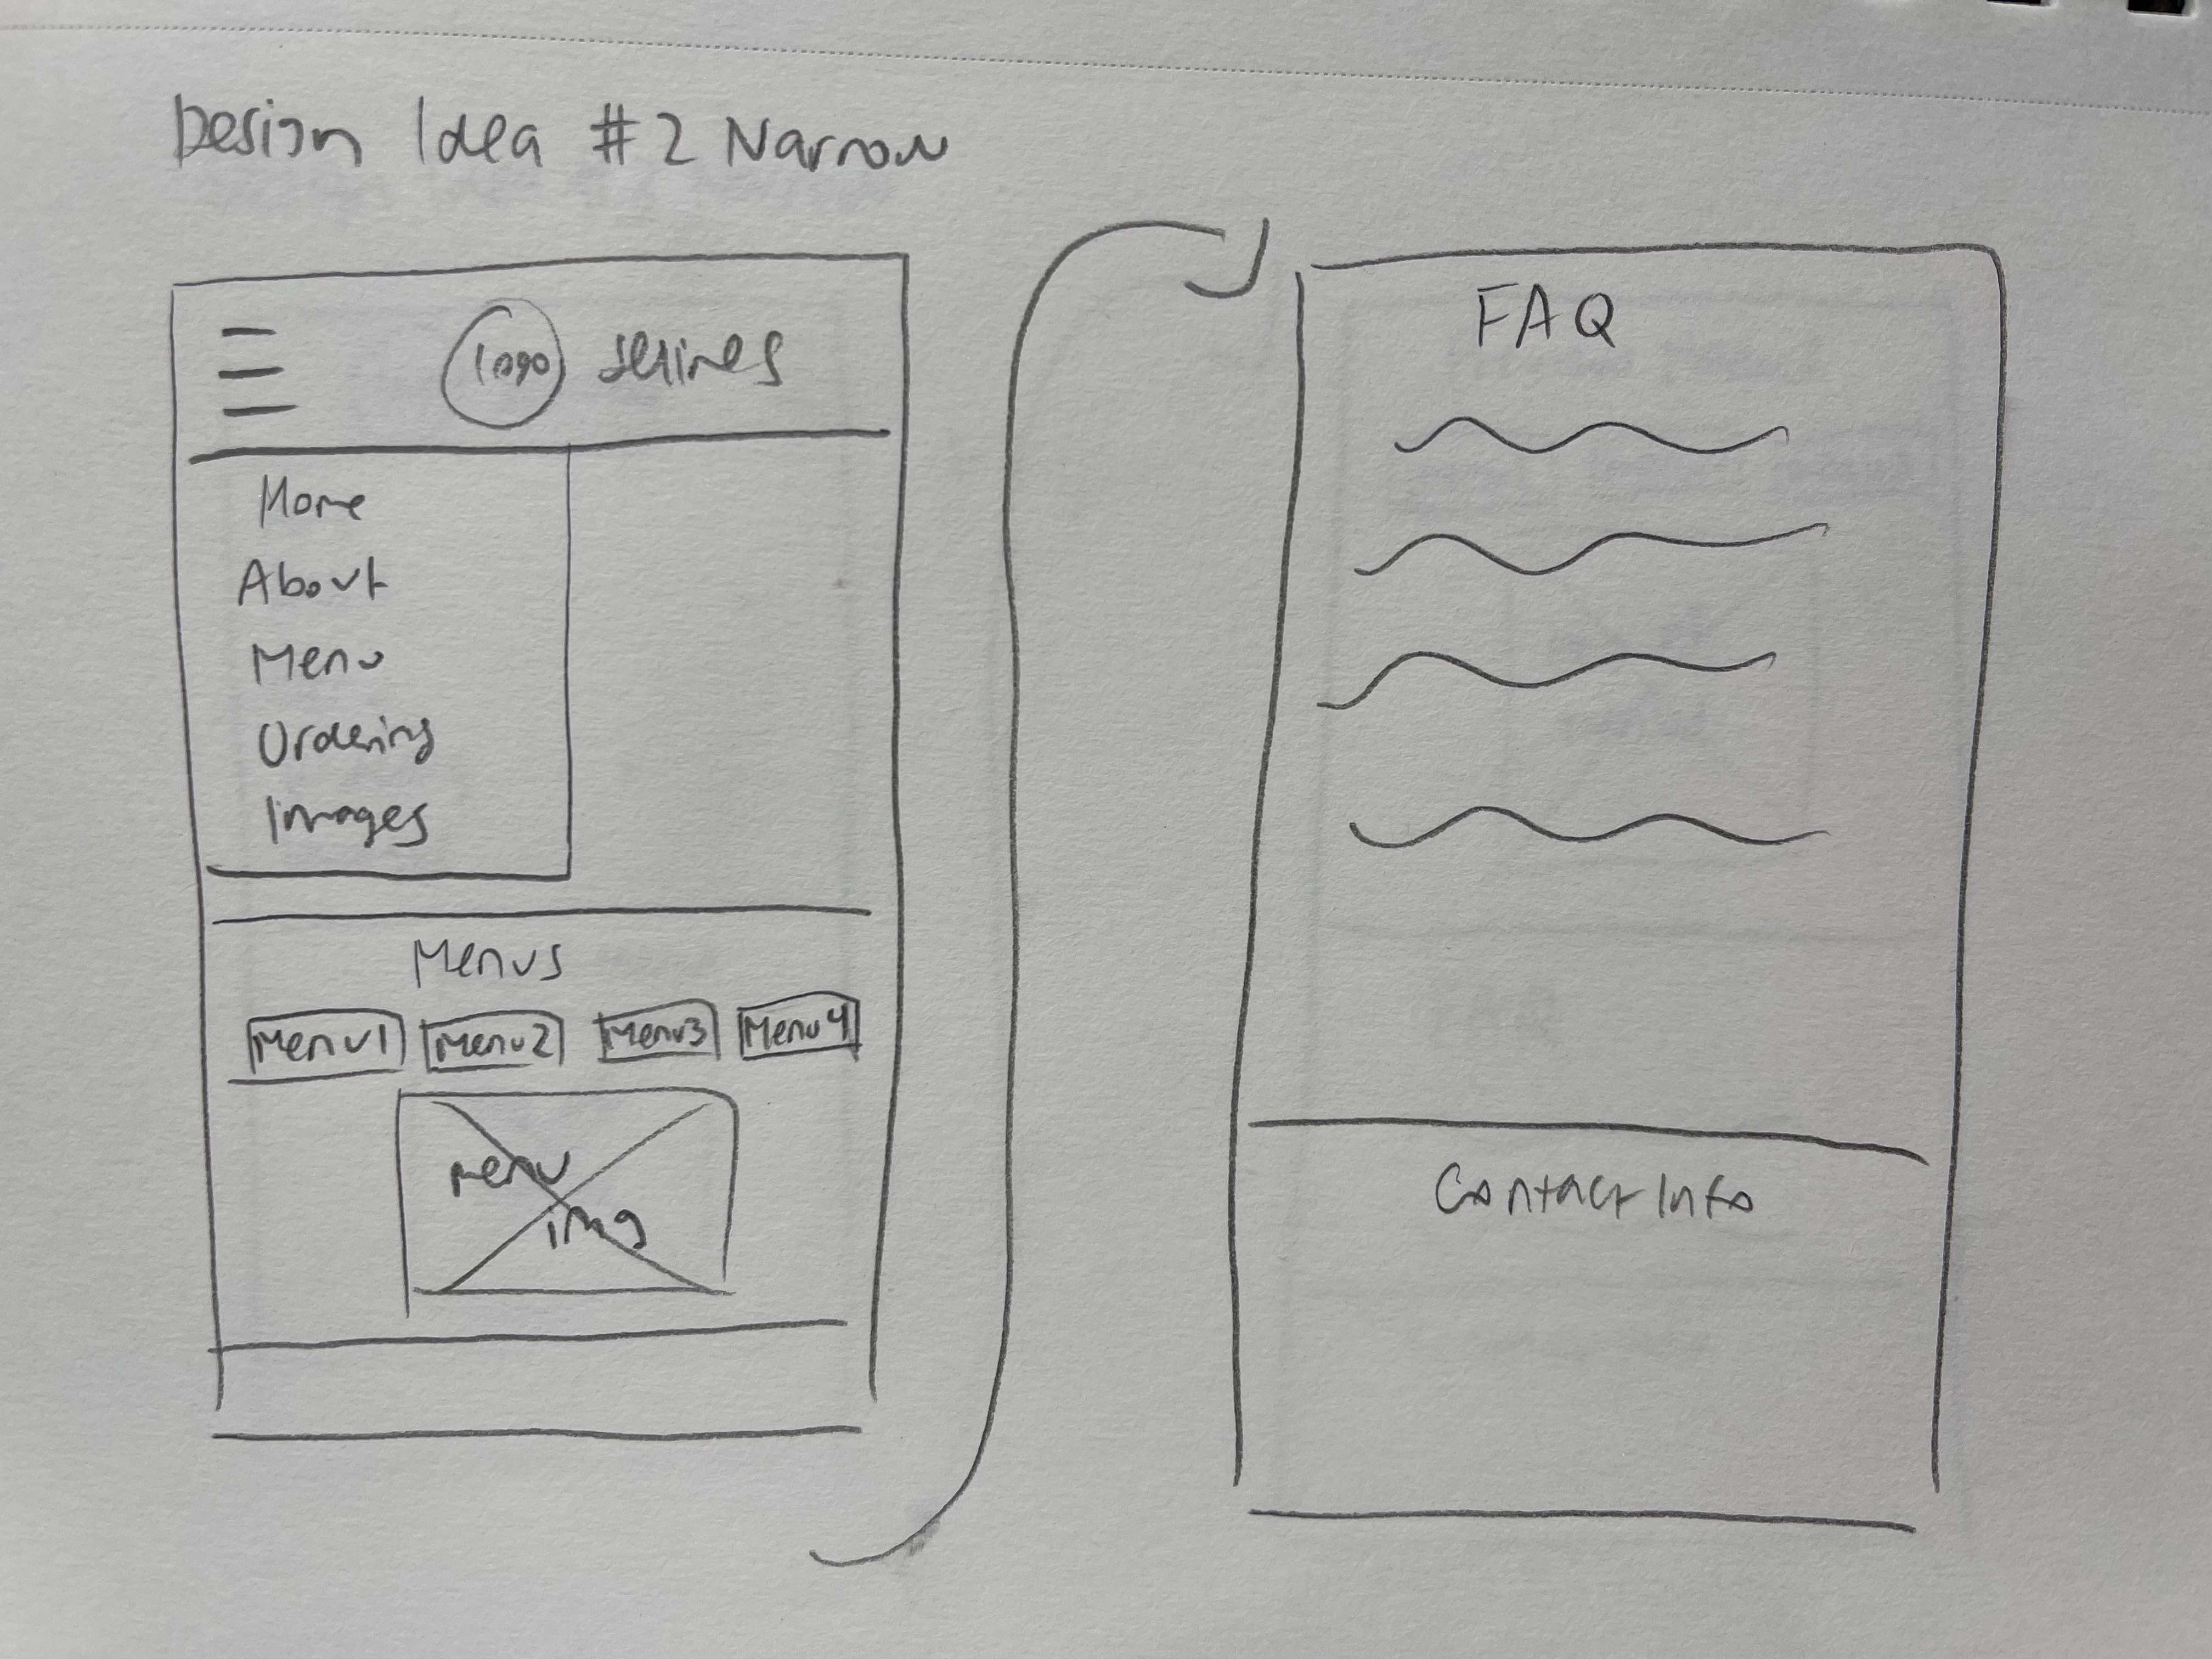 Design Idea #2 Narrow
logo
Home
About
Menu
Ordering
Images
Menus
Menu1 Menu2 Menu3 Menu4
menu
img
FAQ
Contact Info